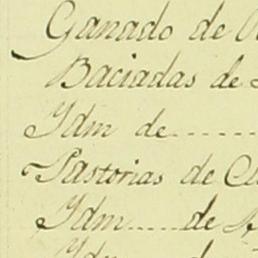 Ganado de
Baciadas de
Ydm de------
Pastorias de
Ydm.....de
Ydm de